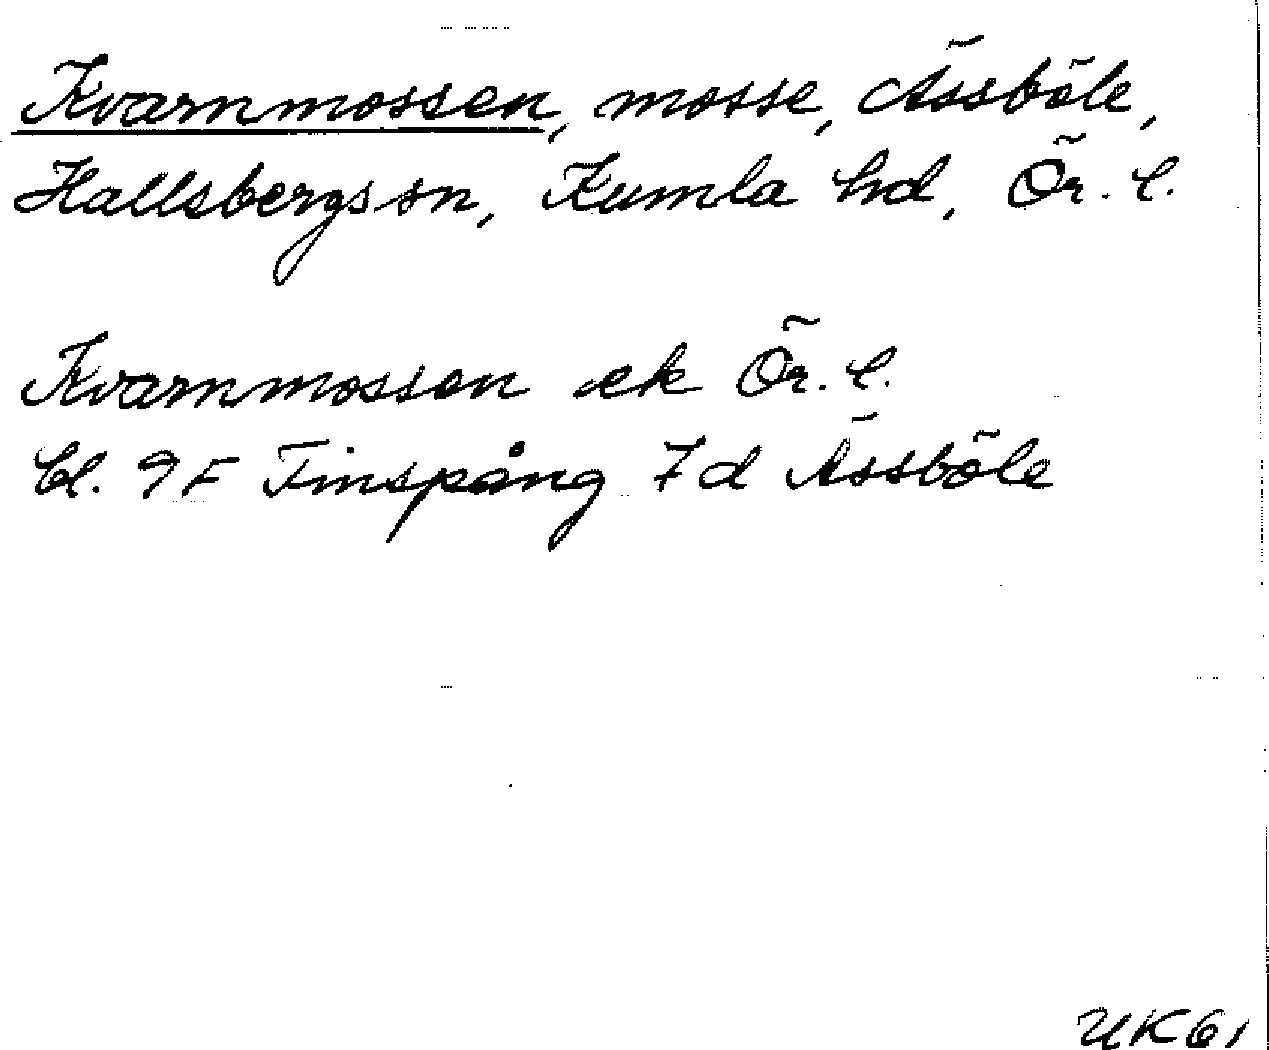 Kvarnmossen, mosse, Ässböle,
Hallsbergs sn, Kumla hd, Ör. l.
Kvarnmossen ek Ör. l.
bl. 9F Finspång 7d Ässböle
UK61